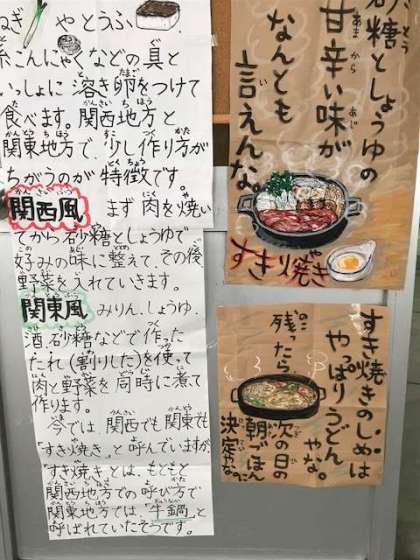 ねぎ やとうふ、
糸こんにゃくなどの具と
いっしょに溶き卵をつけて
食べます。関西地方と
関東地方で、少し作り方が
ちがうのが特徴です。
関西風 まず肉を焼い
てから砂糖としょうゆで
好みの味に整えて、その後
野菜を入れていきます。
関東風 みりん、しょうゆ、
酒、砂糖などで作った
たれ(割りした)を使って
肉と野菜を同時に煮て
作ります。
今では、関西でも関東でも
「すき焼き」と呼んでいますが、
「すき焼き」とは、もともと
関西地方での呼び方で
関東地方では、「牛鍋」と
呼ばれていたそうです。
砂糖としょうゆの
甘辛い味が
なんとも
言えんな。
すき焼き
すき焼きのしめは
やっぱりうどん
やな。
残ったら
次の日の
朝ごはん
決定やな。